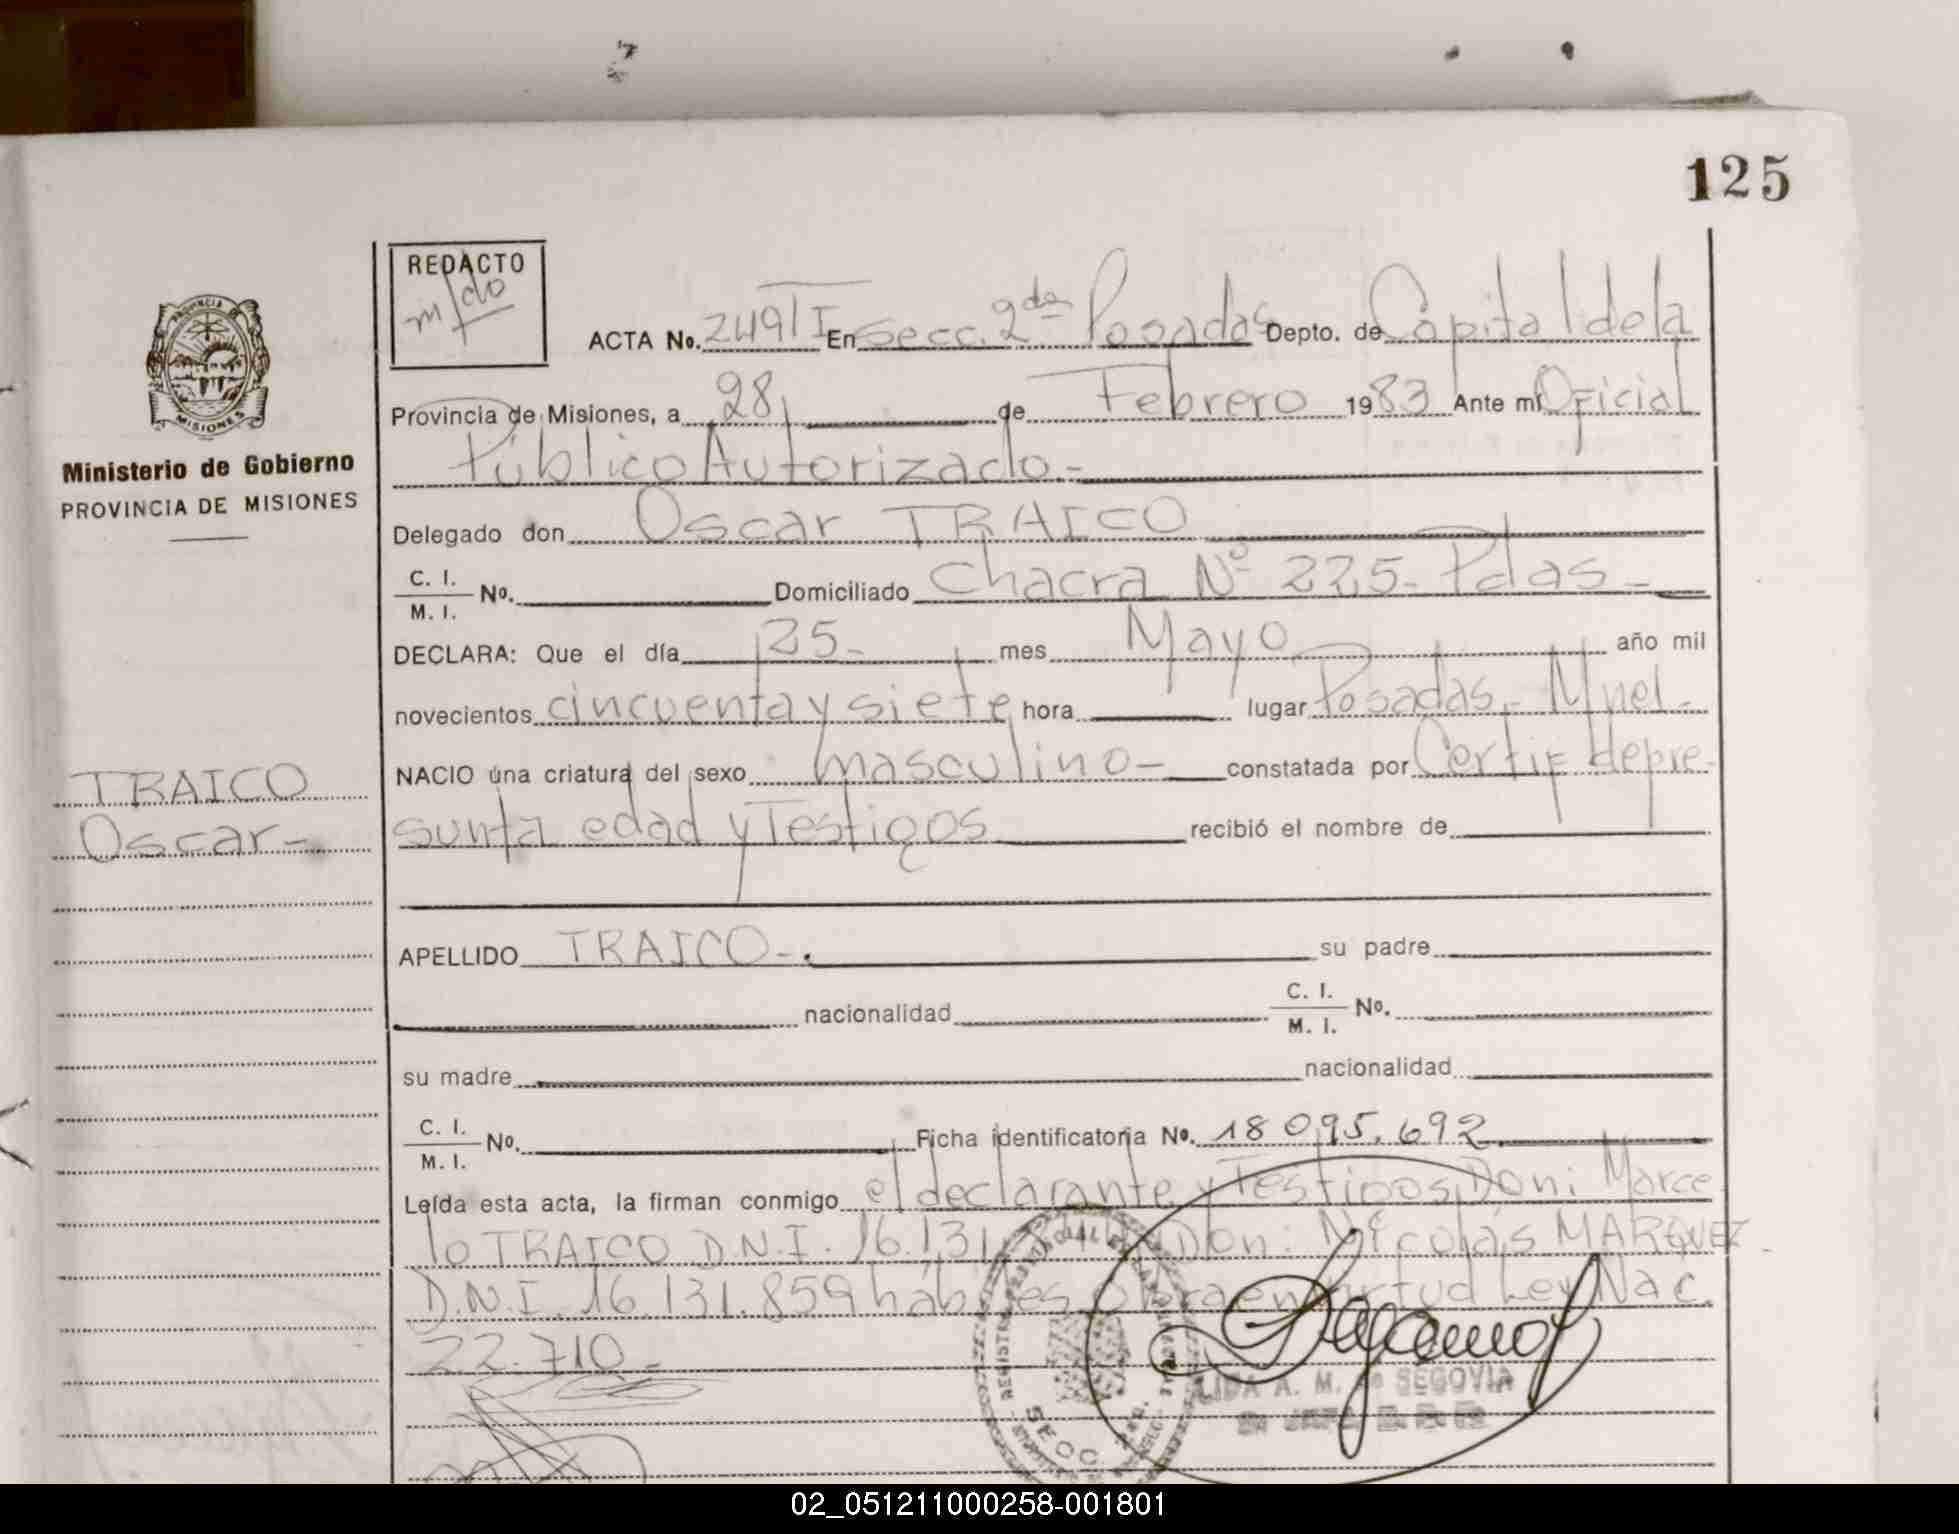 125
REDACTO
ACTA No. 249 I En Secc. 2da Posadas Depto. de Capital de la
Provincia de Misiones, a 28 de Febrero 1983 Ante mí Oficial
Público Autorizado.-
Ministerio de Gobierno
PROVINCIA DE MISIONES
Delegado don Oscar TRAICO
C. I.
M. I. No. Domiciliado Chacra Nº 225- Pdas-
DECLARA: Que el día 25- mes Mayo año mil
novecientos cincuenta y siete hora lugar Posadas.- Mnes.-
NACIO una criatura del sexo masculino- constatada por Certif de pre-
TRAICO
Oscar-
sunta edad y Testigos recibió el nombre de
APELLIDO TRAICO-. su padre
nacionalidad C. I.
M. I. No.
su madre nacionalidad
C. I.
M. I. No. Ficha identificatoria No. 18 095.692
Leída esta acta, la firman conmigo el declarante y Testigos Don: Marce-
lo TRAICO D.N.I. 16.131 Don: Nicolás MARQUEZ-
D.N.I. 16.131.859 hábiles Ley Nac.
22.710-
LIDA A. M. de SEGOVIA
MISIONES
02_051211000258-001801